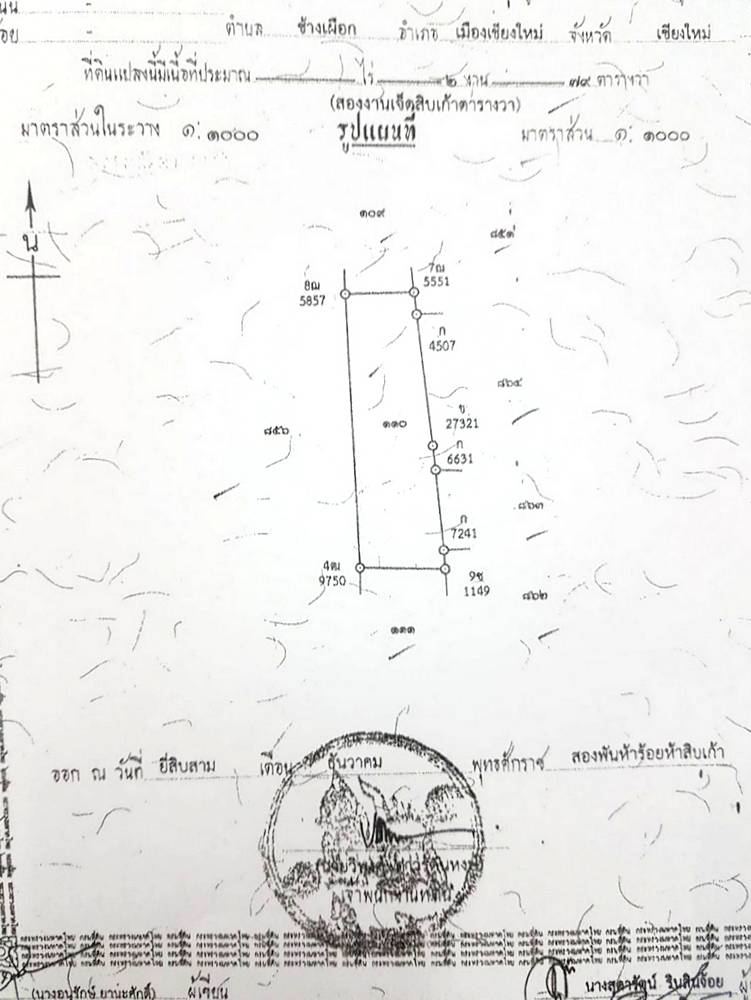 ตำบล ช้างเผือก อำเภอ เมืองเชียงใหม่ จังหวัด เชียงใหม่
ที่ดินแปลงนี้มีเนื้อที่ประมาณ - ไร่ ๒ งาน ๗๙ ตารางวา
(สองงานเจ็ดสิบเก้าตารางวา)
มาตราส่วนในระวาง ๑: ๑๐๐๐ รูปแผนที่ มาตราส่วน ๑: ๑๐๐๐
๑๐๙
๘๕๑
น
8ฌ
5857
7ฌ
5551
ก
4507
๘๖๔
๘๕๖
๑๑๐
ข
27321
ก
6631
๘๖๓
ก
7241
4ฒ
9750
9ช
1149
๘๖๒
๑๑๑
ออก ณ วันที่ ยี่สิบสาม เดือน ธันวาคม พุทธศักราช สองพันห้าร้อยห้าสิบเก้า
เจ้าพนักงานที่ดิน
(นางอนุรักษ์ ยานะศักดิ์) ผู้เขียน